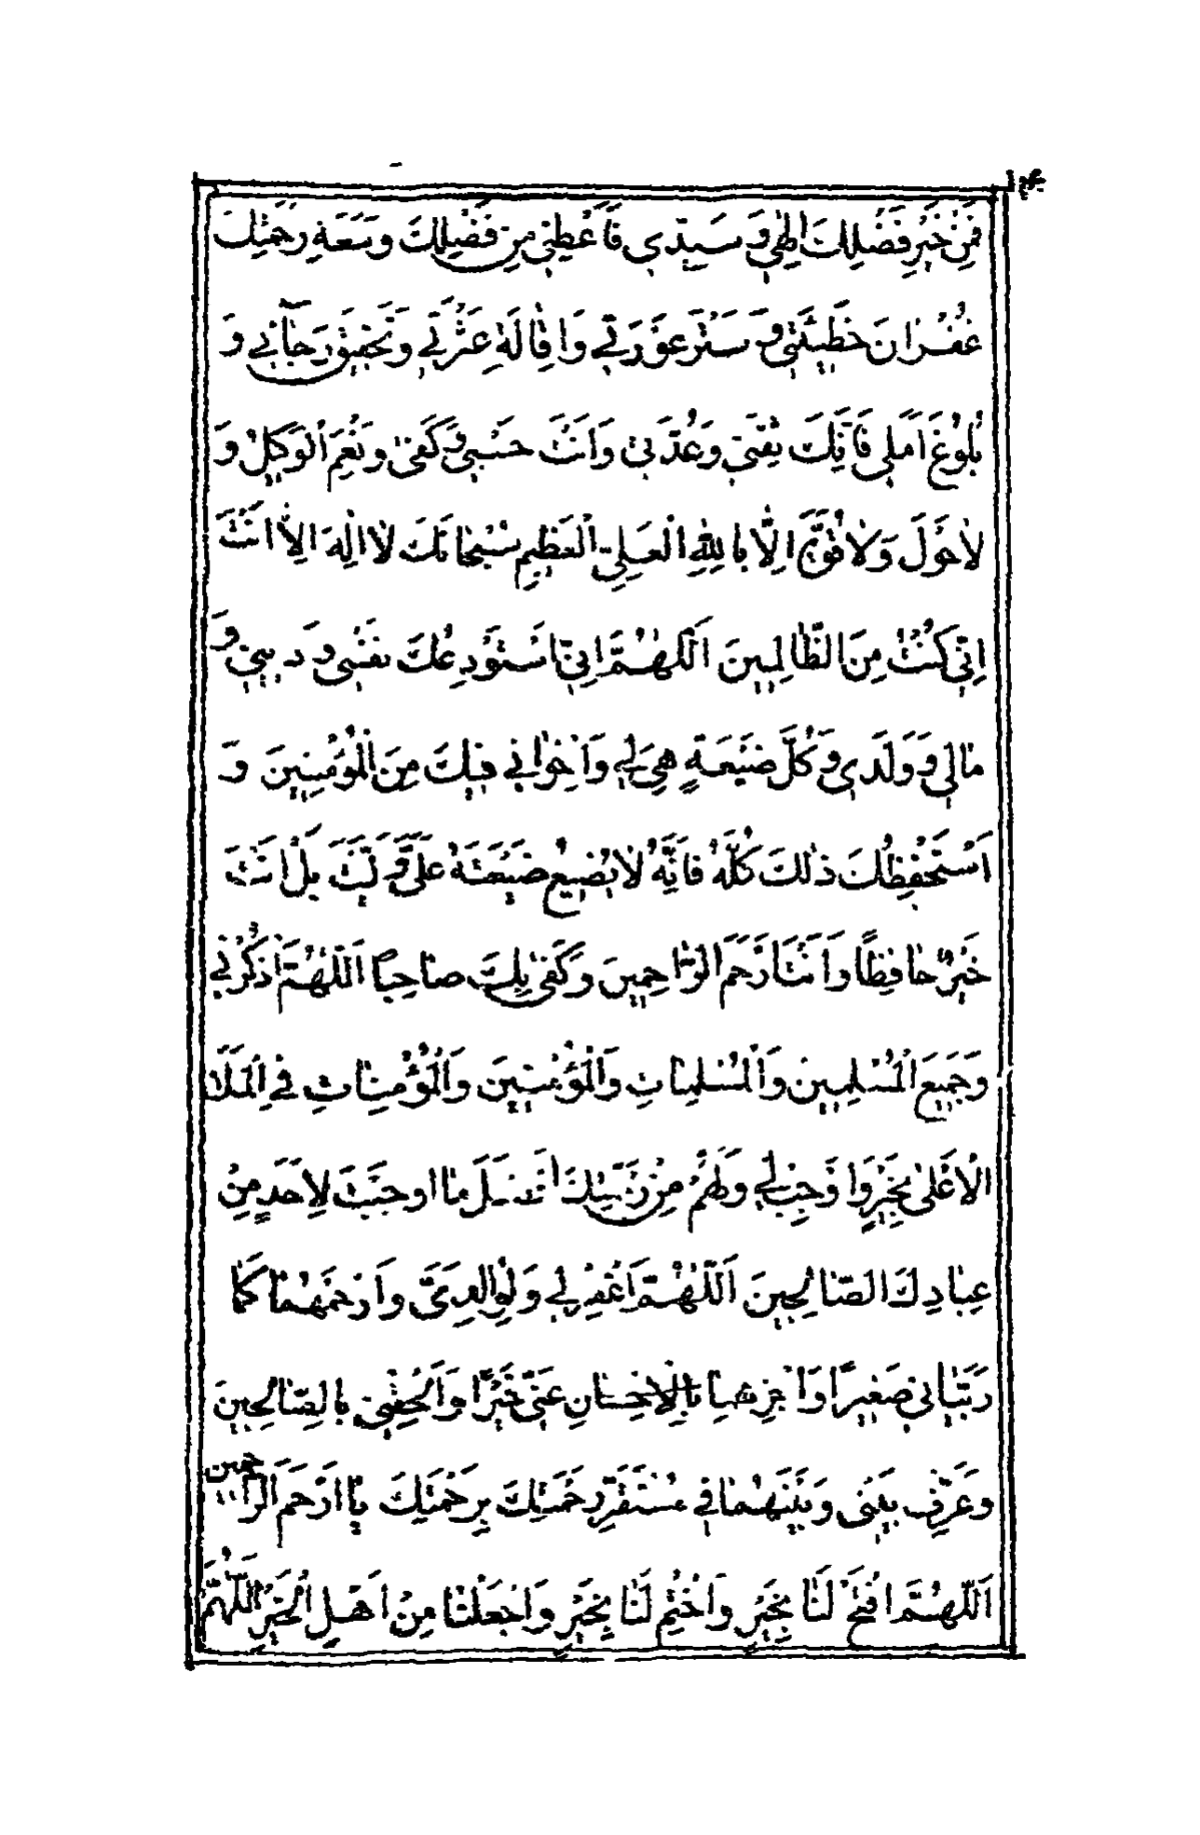 فَمِنْ خَيْرِ فَضْلِكَ اِلٰهِي وَ سَيِّدِي فَاَعْطِنِي مِنْ فَضْلِكَ وَسَعَةِ رَحْمَتِكَ
غُفْرَانَ خَطِيئَتِي وَ سَتْرَ عَوْرَتِي وَاِقَالَةِ عَثْرَتِي وَتَحْقِيقِ رَجَآئِي وَ
بُلُوغَ اَمَلِي فَاِنَّكَ ثِقَتِي وَعُدَّتِي وَاَنْتَ حَسْبِي وَ كَفىٰ وَنِعْمَ الْوَكِيلُ وَ
لاٰ حَوْلَ وَلاٰ قُوَّةَ اِلّٰا بِاللّٰهِ الْعَلِيِّ الْعَظِيمِ سُبْحَانَكَ لاٰ اِلٰهَ اِلاّٰ اَنْتَ
اِنِّي كُنْتُ مِنَ الظَّالِمِينَ اَللّٰهُمَّ اِنِّي اَسْتَوْدِعُكَ نَفْسِي وَ دِينِي وَ
مٰالِي وَ وَلَدِي وَ كُلَّ ضَيْعَةٍ هِيَ لِي وَ اَخْوٰانِي فِيكَ مِنَ الْمُؤْمِنِينَ وَ
اَسْتَحْفِظُكَ ذٰلِكَ كُلَّهُ فَاِنَّهُ لاٰ يُضِيعُ ضَيْعَتَهُ عَلَيْكَ بَلْ اَنْتَ
خَيْرٌ حٰافِظًا وَاَنْتَ اَرْحَمُ الرّٰاحِمِينَ وَ كَفىٰ بِكَ صٰاحِبًا اَللّٰهُمَّ اذْكُرْنِي
وَجَمِيعَ الْمُسْلِمِينَ وَالْمُسْلِمٰاتِ وَالْمُؤْمِنِينَ وَالْمُؤْمِنٰاتِ فِي الْمَلَاِ
الْاَعْلىٰ بِخَيْرٍ وَاَوْجِبْ لِي وَلَهُمْ مِنْ اَفْضَلَ مٰا اَوْجَبْتَ لِاَحَدٍ مِنْ
عِبٰادِكَ الصّٰالِحِينَ اَللّٰهُمَّ اغْفِرْ لِي وَ لِوٰالِدَيَّ وَارْحَمْهُمٰا كَمٰا
رَبَّيٰانِي صَغِيرًا وَاجْزِهِمٰا بِالْاِحْسٰانِ عَنِّي خَيْرًا وَاَلْحِقْنِي بِالصّٰالِحِينَ
وَعَرِّفْ بَيْنِي وَبَيْنَهُمٰا فِي مُسْتَقَرِّ رَحْمَتِكَ بِرَحْمَتِكَ يٰا اَرْحَمَ الرّٰاحِمِينَ
اَللّٰهُمَّ افْتَحْ لَنٰا بِخَيْرٍ وَاخْتِمْ لَنٰا بِخَيْرٍ وَاجْعَلْنٰا مِنْ اَهْلِ الْخَيْرِ اَللّٰهُمَّ